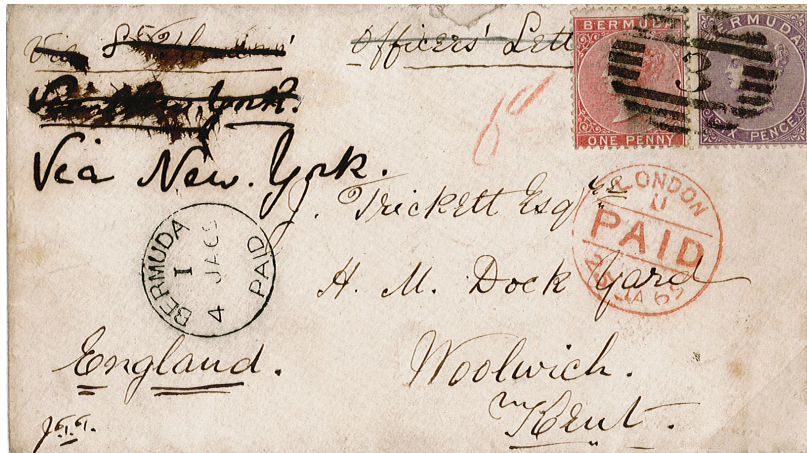 Via
Officers' Lett
BERMUDA
ONE PENNY
BERMUDA
SIX PENCE
3
Via New York.
Via New. York.
J. Trickett Esqre
LONDON
PAID
JA 69
BERMUDA
I
4 JA 69
PAID
H. M. Dock Yard
England.
Woolwich.
Kent.